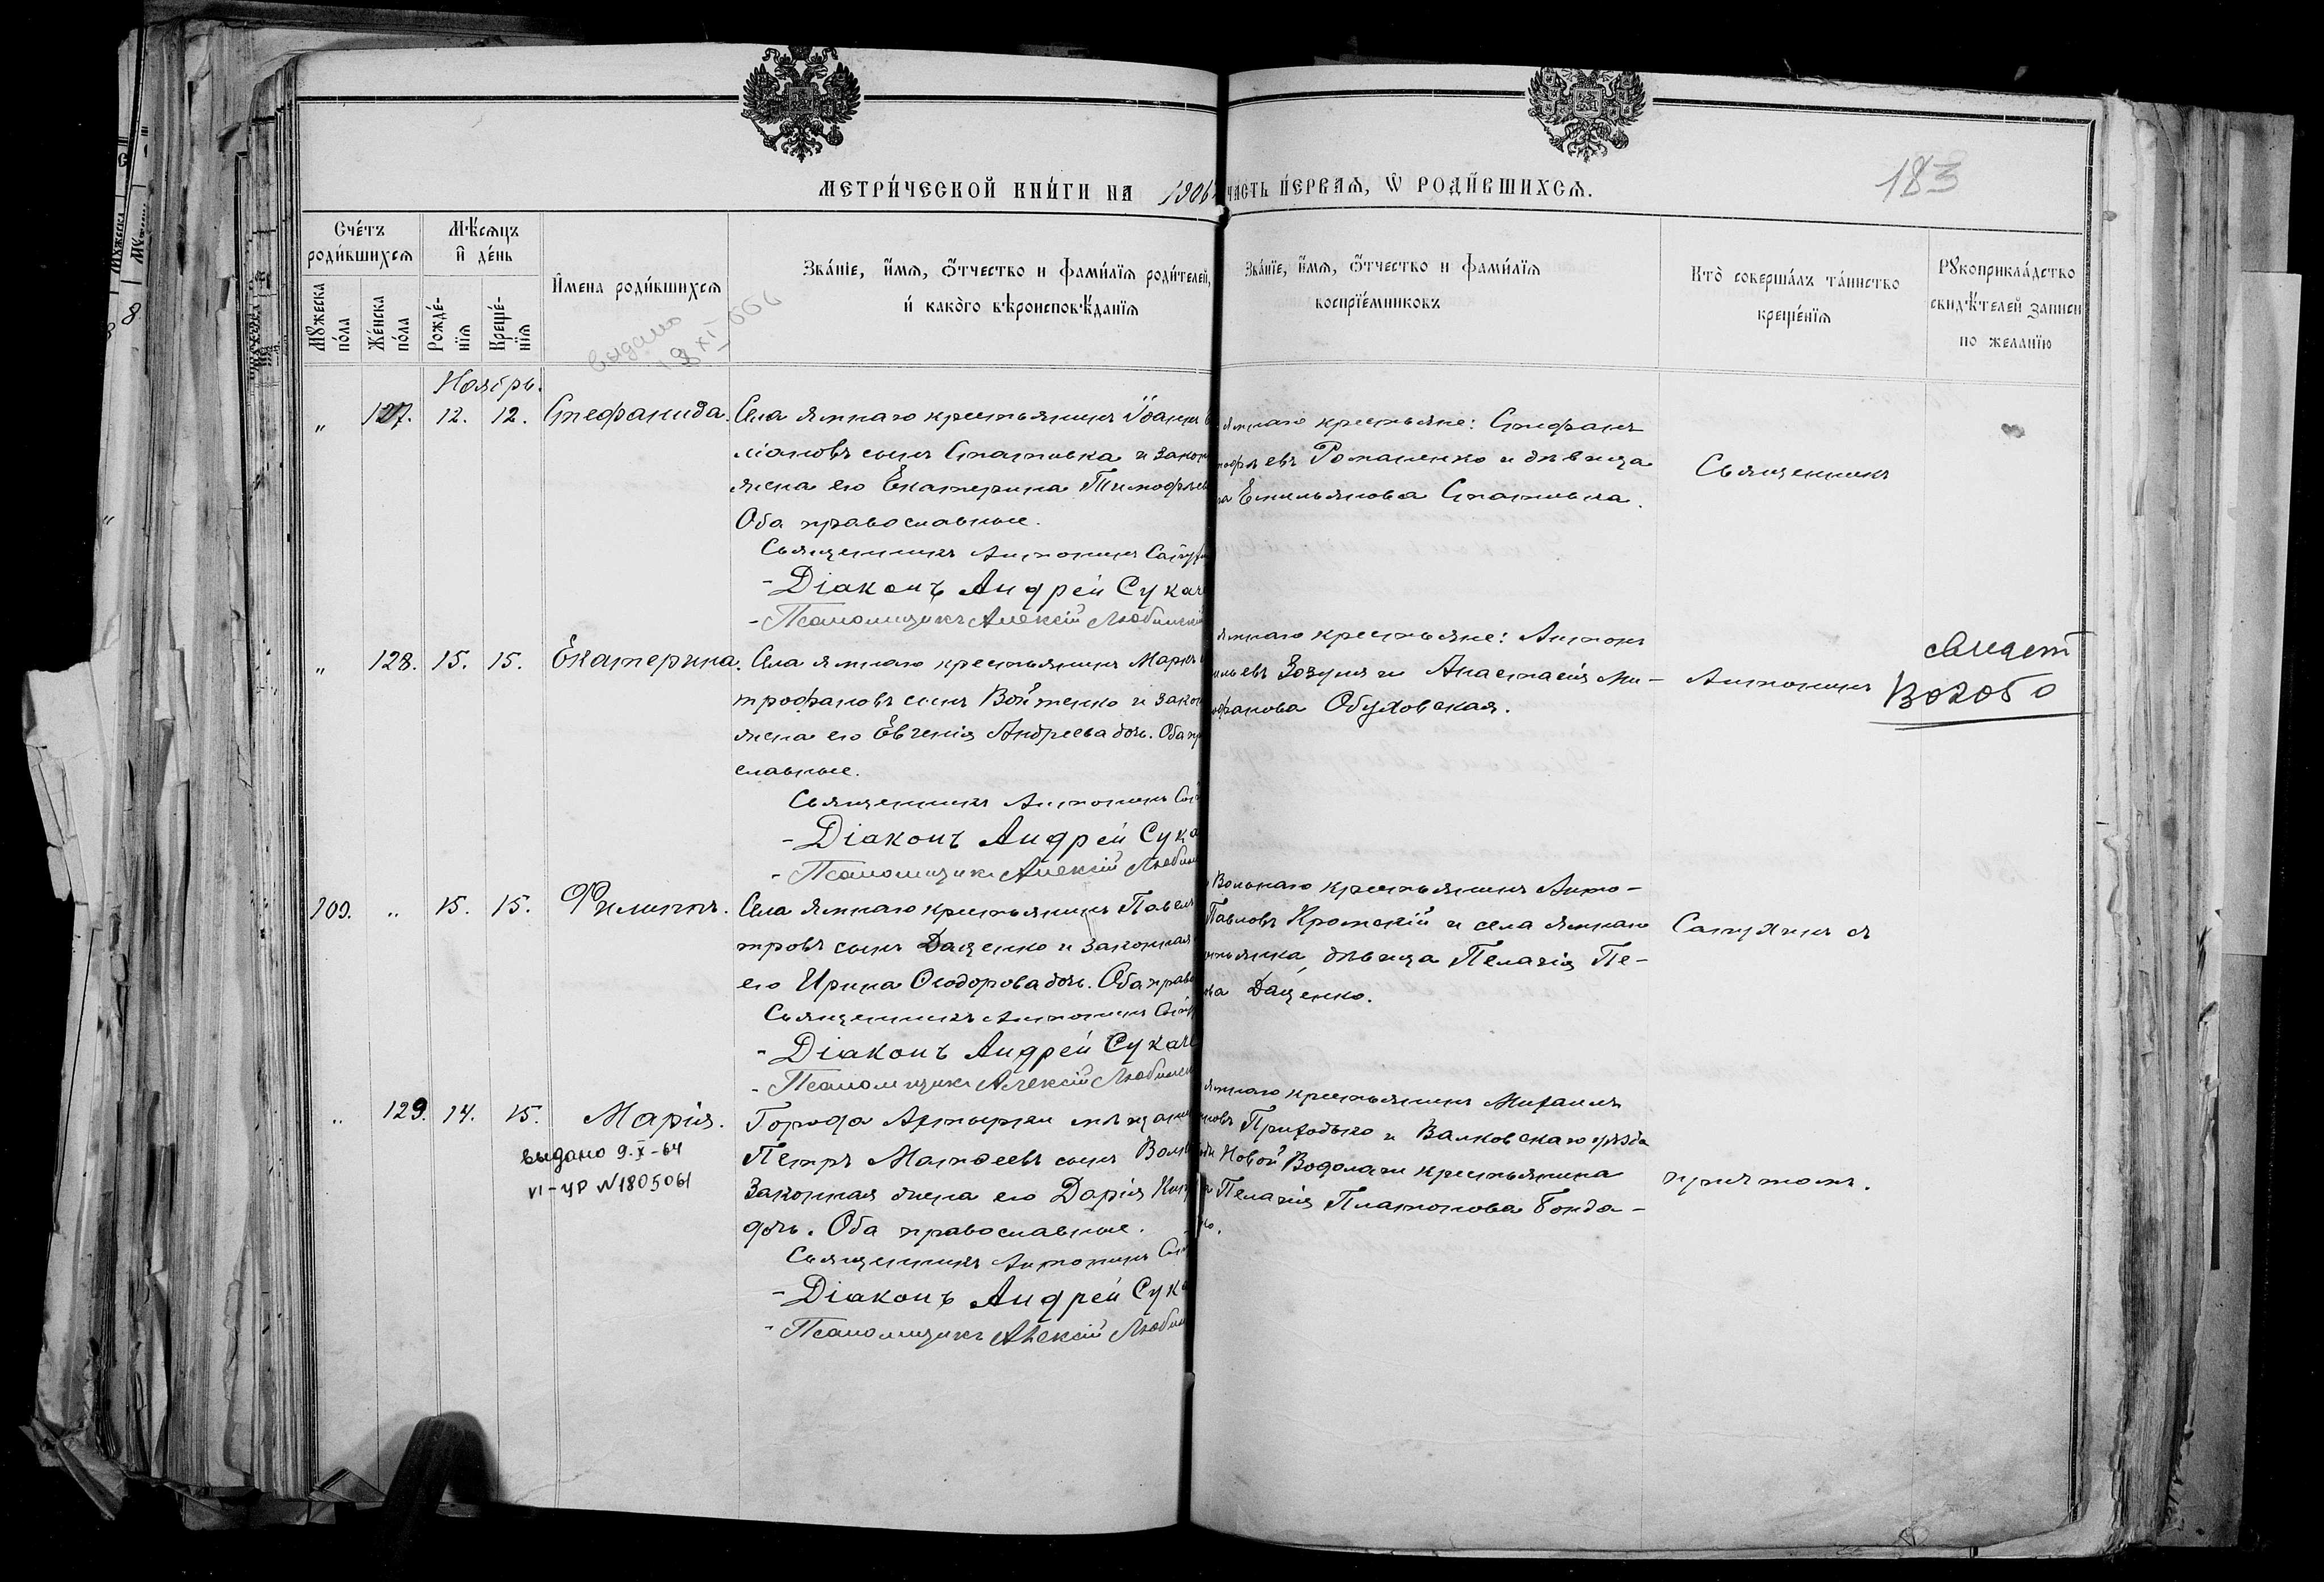 МЕТРИ́ЧЕСКОЙ КНИ́ГИ НА 1906
ЧАСТЬ ПЕ́РВАЯ, Ѡ РОДИ́ВШИХСЯ.
183
Сче́тъ роди́вшихся
Мѣ́сяцъ и де́нь
И́мена роди́вшихся
Зва́нїе, и́мя, о́тчество и фами́лїя роди́телей,
и како́го вѣроисповѣ́данїя
Зва́нїе, и́мя, о́тчество и фами́лїя
воспрїе́мниковъ
Кто̀ соверша́лъ та́инство
креще́нїя
Рꙋкоприкла́дство
свидѣ́телей записи
по жела́нїю
Мꙋжеска по́ла
Же́нска по́ла
Рожде́-нїя
Креще́-нїя
выдано
Ноябрь.
„ 127. 12. 12. Стефанида.
Села Ямнаго крестьянинъ Іоаннъ
ліановъ сынъ Стативка и закон
жена его Екатерина Тимофѣев
Оба православные.
Священникъ Антонинъ
- Діаконъ Андрей Сукач
- Псаломщикъ Алексій Любинскій
Ямнаго крестьяне: Стефанъ
мофѣевъ Романенко и дѣвица
на Емельянова Стативка.
Священникъ
„ 128. 15. 15. Екатерина.
Села Ямнаго крестьянинъ Маркъ
трофановъ сынъ Войтенко и закон
жена его Евгенія Андреева дочь. Оба пр
славные.
Священникъ Антонинъ
- Діаконъ Андрей Сука
- Псаломщикъ Алексій Любин
Ямнаго крестьяне: Антонъ
ильевъ Зозуля и Анастасія Ми-
офанова Обуховская.
Антонинъ
свидет
109. „ 15. 15. Филиппъ.
Села Ямнаго крестьянинъ Павелъ
тровъ сынъ Даценко и законная
его Ирина Ѳеодорова дочь. Оба право
Священникъ Антонинъ
- Діаконъ Андрей Сукаче
- Псаломщикъ Алексій Любинск
Вольнаго крестьянинъ Анто-
Павловъ Кротскій и села Ямнаго
стьянка, дѣвица Пелагія Пе-
ова Даценко.
Сапухинъ съ
„ 129. 14. 15. Марія.
выдано 9.X-64
VI-УР №1805061
Города Ахтырки мѣщани
Петръ Матѳеевъ сынъ Волк
законная жена его Дарія
дочь. Оба православные.
Священникъ Антонинъ
- Діаконъ Андрей Сука
- Псаломщикъ Алексій Любин
Ямнаго крестьянинъ Михаилъ
новъ Приходько и Валковскаго уѣзда
оды Новой Водолаги крестьянина
Пелагія Платонова Бонда-
ко.
причтомъ.